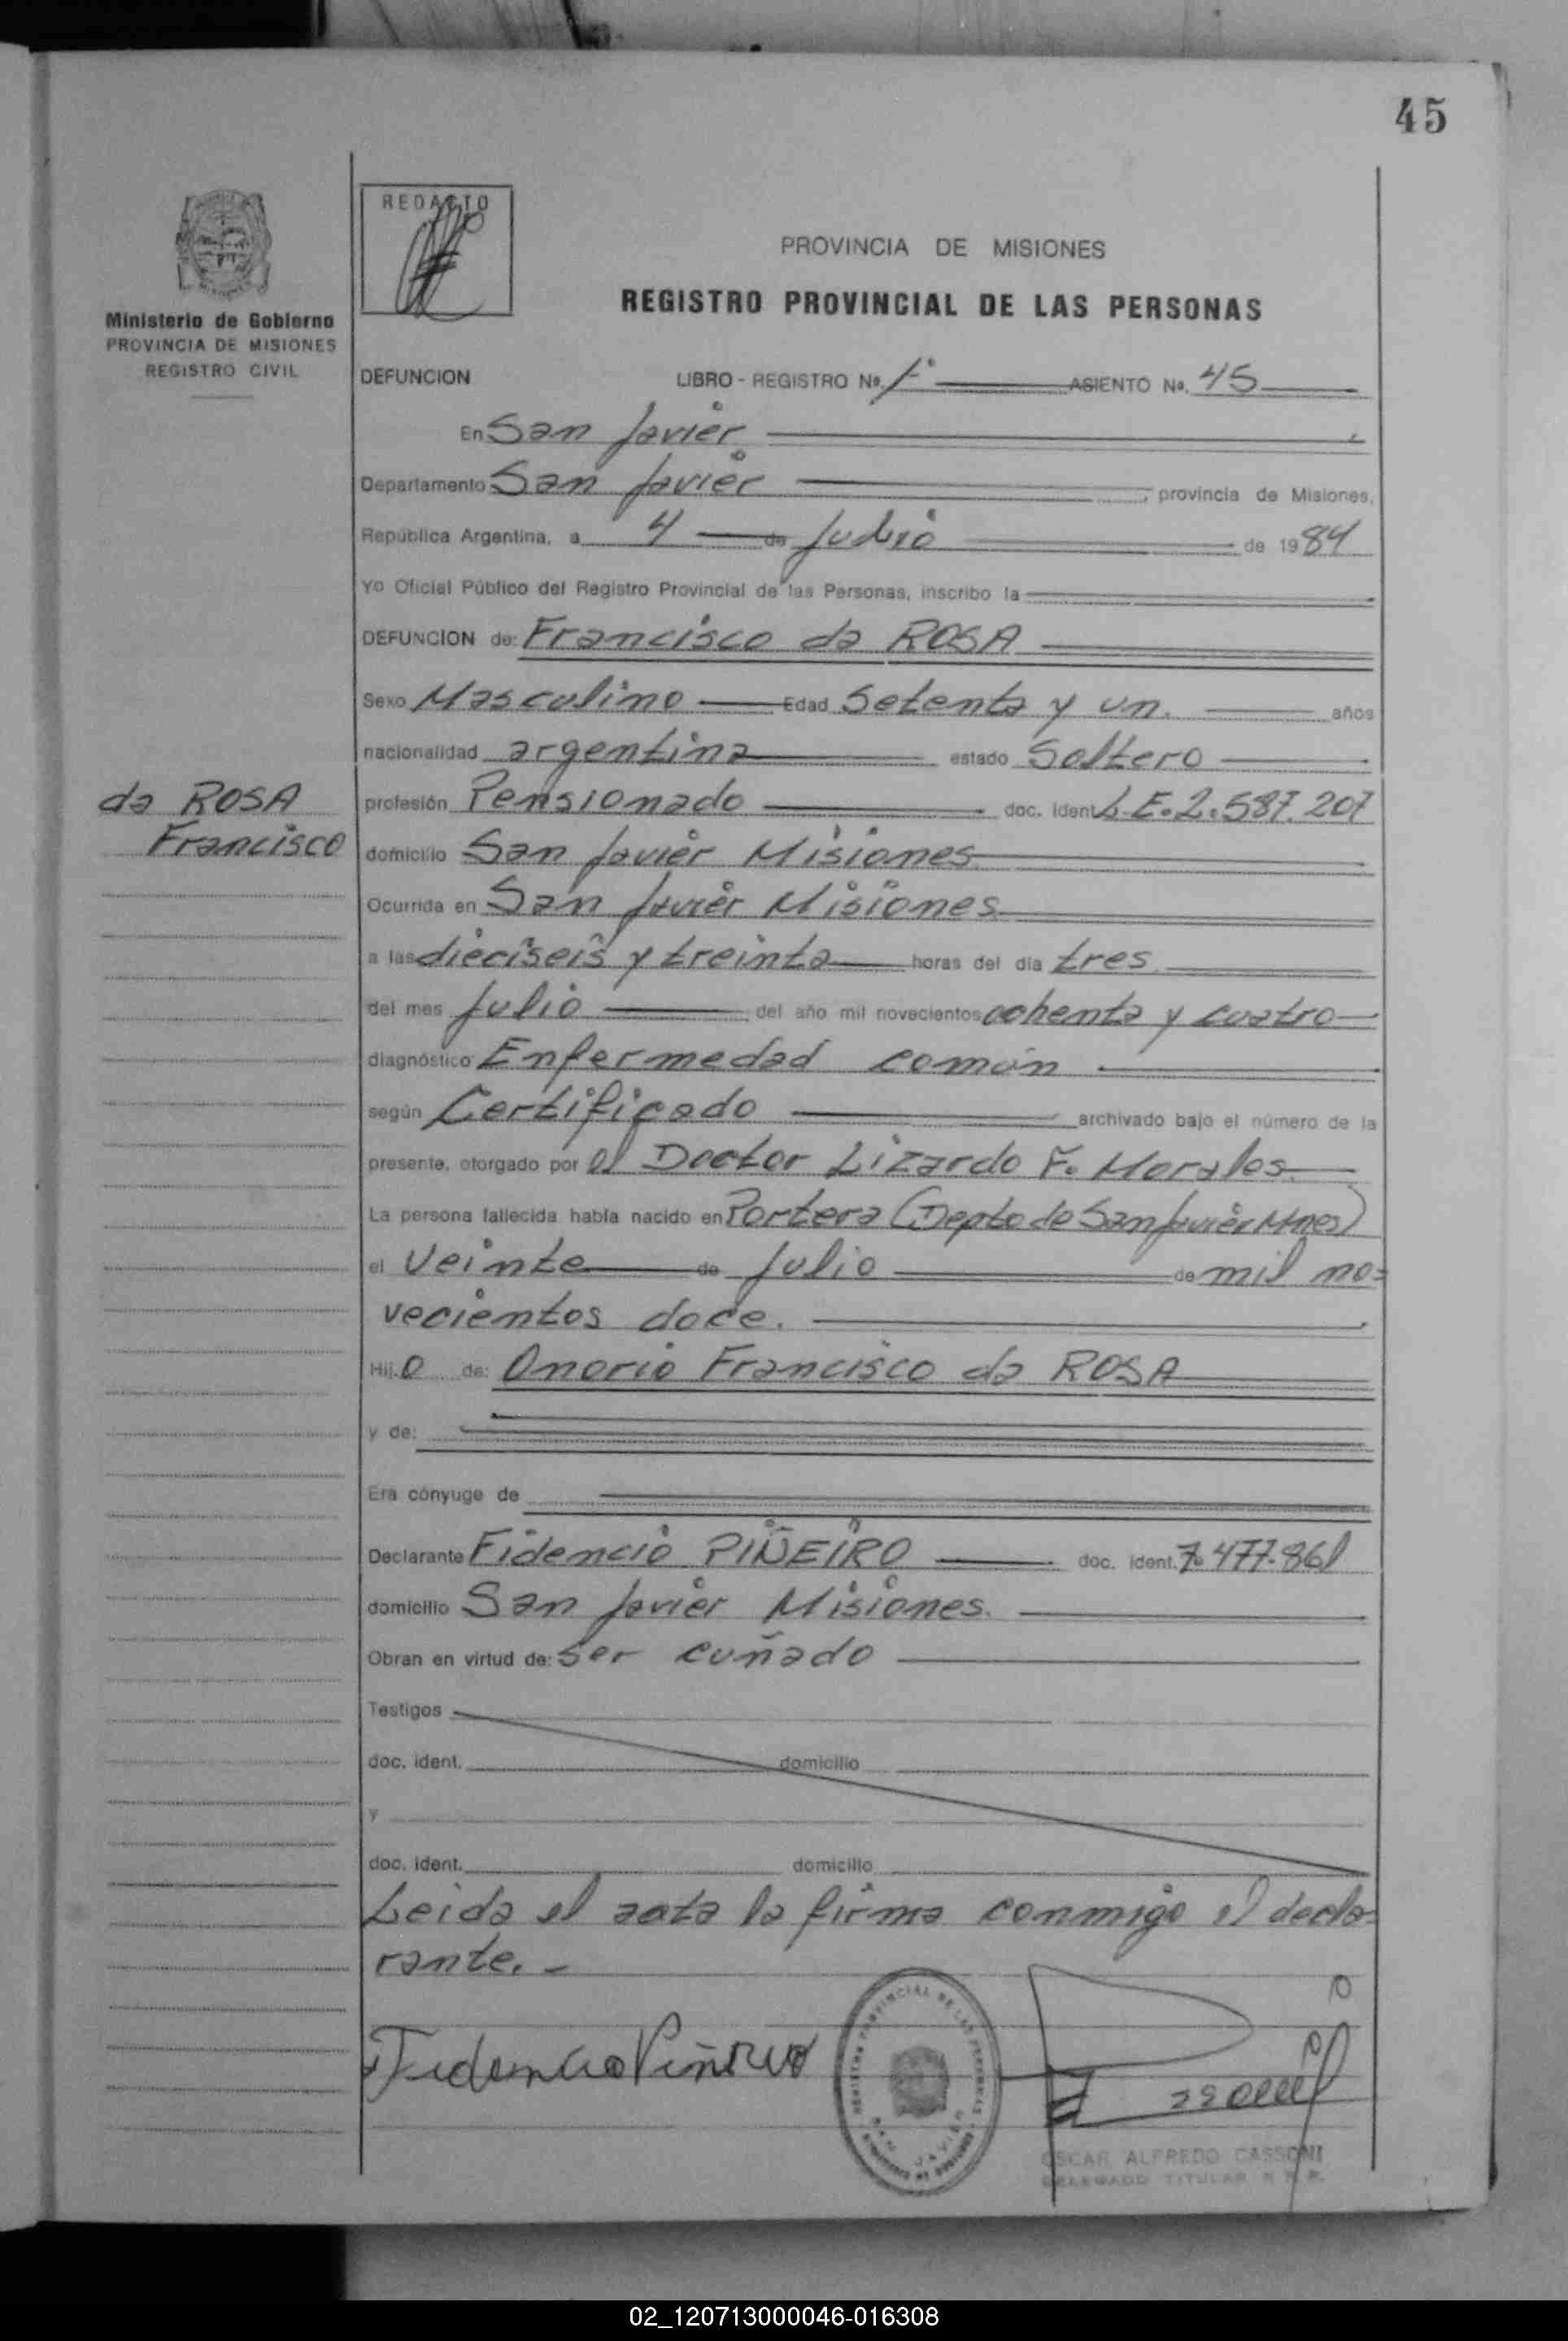 45
REDACTO
PROVINCIA DE MISIONES
REGISTRO PROVINCIAL DE LAS PERSONAS
Ministerio de Gobierno
PROVINCIA DE MISIONES
REGISTRO CIVIL
DEFUNCION LIBRO - REGISTRO Nº. 1º ASIENTO Nº. 45
En San Javier
Departamento San Javier, provincia de Misiones,
República Argentina, a 4 de Julio de 1984
Yo Oficial Público del Registro Provincial de las Personas, inscribo la
DEFUNCION de: Francisco da ROSA
Sexo Masculino Edad Setenta y un. años
nacionalidad argentina estado Soltero
da ROSA
Francisco
profesión Pensionado doc. ident. L.E. 2.587.207
domicilio San Javier Misiones
Ocurrida en San Javier Misiones
a las dieciseis y treinta horas del día tres.
del mes Julio del año mil novecientos ochenta y cuatro
diagnóstico: Enfermedad común
según Certificado archivado bajo el número de la
presente, otorgado por el Doctor Lizardo F. Morales.
La persona fallecida había nacido en Portera (Depto de San Javier Mnes)
el Veinte de Julio de mil no=
vecientos doce.
Hij.o de: Onorio Francisco da ROSA
y de:
Era cónyuge de
Declarante Fidencio PIÑEIRO doc. ident. 7.477.861
domicilio San Javier Misiones.
Obran en virtud de: ser cuñado
Testigos
doc. ident. domicilio
y
doc. ident. domicilio
Leida el acta la firma conmigo el decla=
rante. -
Fidencio Piñeiro
REGISTRO PROVINCIAL DE LAS PERSONAS
SAN JAVIER
OSCAR ALFREDO CASSONI
DELEGADO TITULAR R. P. P.
02_120713000046-016308